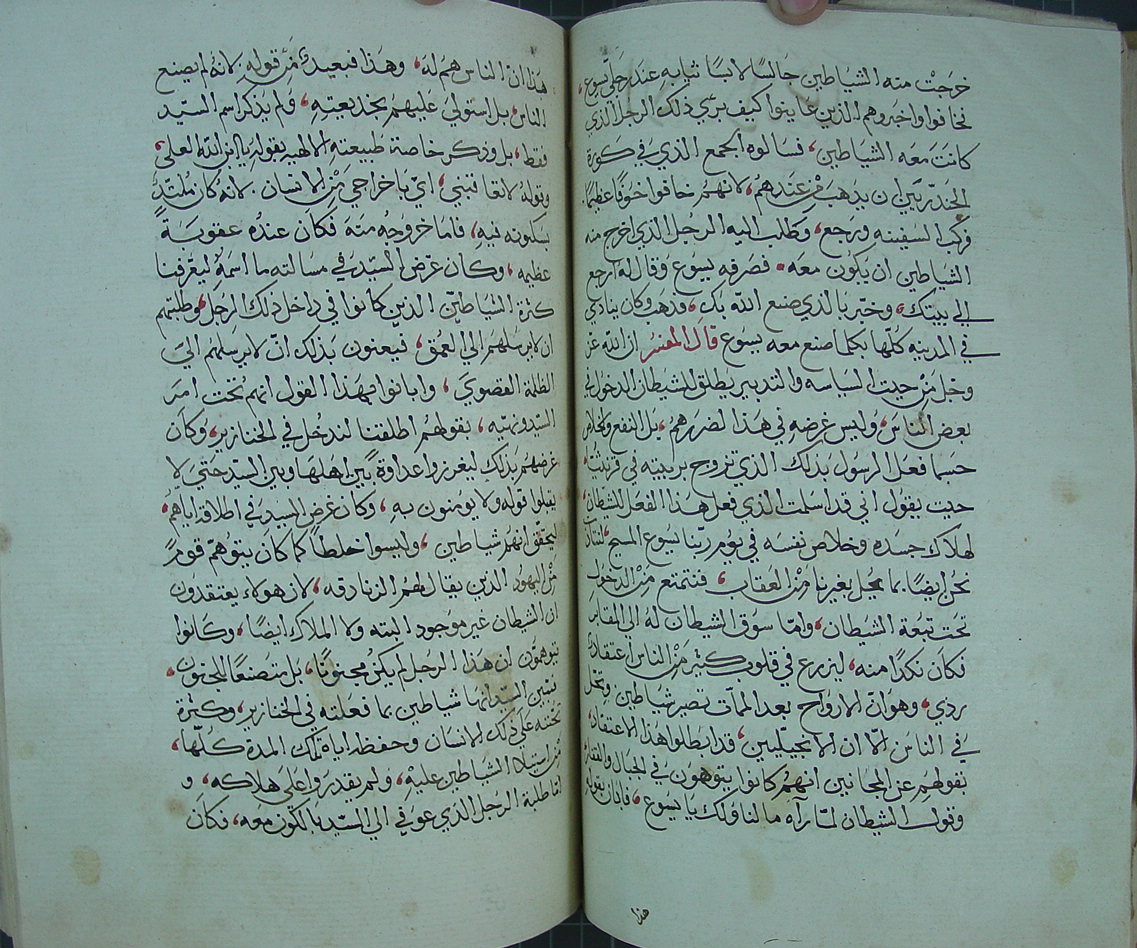 خرجت منه الشياطين جالسًا لابسًا ثيابه عند رجلي يسوع،
فخافوا واخبروهم الذين عاينوا كيف بري ذلك الرجل الذي
كانت معه الشياطين، فسالوه الجمع الذي في كورة
الجدريين ان يذهب من عندهم، لانهم خافوا خوفًا عظيمًا،
فركب السفينه ورجع، وطلب اليه الرجل الذي اخرج منه
الشياطين ان يكون معه. فصرفه يسوع وقال له ارجع
الي بيتك، وخبّر بالذي صنع الله بك، فذهب وكان ينادي
في المدينه كلّها بكلما صنع معه يسوع قال المفسر ان الله عز
وجل من حيث السياسه والتدبير يطلق للشيطان الدخول في
بعض الناس، وليس غرضه في هذا لضررهم، بل النفع والخلاص
حسبما فعل الرسول بذلك الذي تزوج بربيبته في قرنثيه،
حيث يقول اني قد اسلمت الذي فعل هذا الفعل للشيطان
لهلاك جسده وخلاص نفسه في يوم ربّنا يسوع المسيح،
نحن ايضًا. بما يحل بغيرنا من العقاب، فنتمتع من الدخول
تحت تبعة الشيطان، وامّا سوق الشيطان له الي المقابر
فكان نكدًا منه، ليزرع في قلوب كثير من الناس اعتقاد
ردي، وهو ان الارواح بعد الممات تصير شياطين وتحل
في الناس الّا ان الانجيليين، قد ابطلوا هذا الاعتقاد،
بقولهم عن المجانين انهم كانوا يتوهون في الجبال والقفار
وقول الشيطان لمّا رآه ما لنا ولك يا يسوع، فابان بقوله
هذا
هذا ان الناس هم له، وهذا فبعيد من قوله لانه لم يصنع
الناس، بل استولي عليهم بخديعته، ولم يذكر اسم السيّد
فقط، بل وذكر خاصة طبيعته الالهيه بقوله يا ابن الله العلي،
وقوله لا تعاقبني، اي باخراجي من الانسان. لانه كان ملتذ
بسكونه فيه، فاما خروجه منه فكان عنده عقوبةً
عظيمه، وكان غرض السيّد في مسالته ما اسمه ليعرفنا
كثرة الشياطين الذين كانوا في داخل ذلك الرجل، وطلبتهم
ان لا يرسلهم الي العمق، فيعنون بذلك انّ لا يرسلهم الي
الظلمة القصوي، وابانوا بهذا القول انهم تحت امر
السيّد ونهيه، بقولهم اطلقنا لندخل في الخنازير، وكان
غرضهم بذلك ليغرزوا عداوة بين اهلها وبين السيد حتي لا
يقبلوا قوله ولا يومنون به، وكان غرض السيد في اطلاقه اياهم،
ليحقق انهم شياطين، وليسوا خلطًا كما كان يتوهم قومٌ
من اليهود الذين يقال لهم الزنادقه، لان هولاء يعتقدون
ان الشيطان غير موجود البته ولا الملاك ايضًا، وكانوا
يتوهمون ان هذا الرجل لم يكن مجنونًا، بل متصنعًا للجنون،
فتبين السيد انها شياطين بما فعلته في الخنازير، وكثرة
تحننه علي ذلك الانسان وحفظه اياه تلك المدة كلّها،
من استيلا الشياطين عليه، ولم يقدروا علي هلاكه، و
امّا طلبة الرجل الذي عوفي الي السيّد بالكون معه، فكان